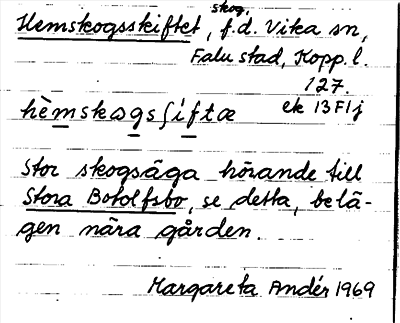 skog,
Hemskogsskiftet, f.d. Vika sn,
Falu stad, Kopp. l.
127.
hèmskɷgsʃíftæ ek 13F1j
stor skogsäga hörande till
Stora Botolfsbo, se detta, belä-
gen nära gården.
Margareta Andér 1969